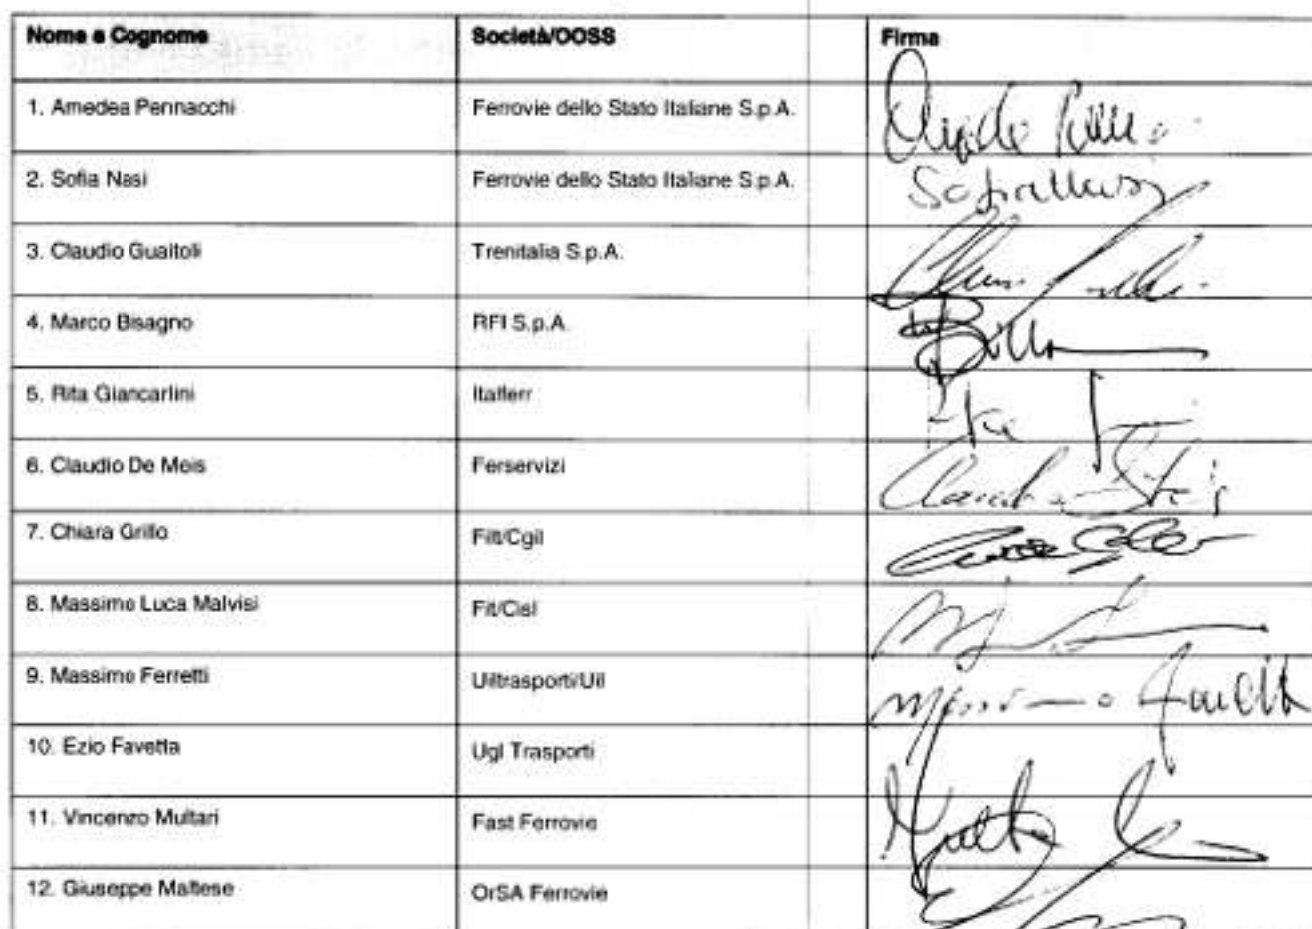 Nome e Cognome Società/OOSS Firma
1. Amedea Pennacchi Ferrovie dello Stato Italiane S.p.A.
2. Sofia Nasi Ferrovie dello Stato Italiane S.p.A. Sofia Nasi
3. Claudio Gualtoli Trenitalia S.p.A.
4. Marco Bisagno RFI S.p.A.
5. Rita Giancarlini Italferr
6. Claudio De Meis Ferservizi
7. Chiara Grillo Filt/Cgil
8. Massimo Luca Malvisi Fit/Cisl
9. Massimo Ferretti Uiltrasporti/Uil Massimo Ferretti
10. Ezio Favetta Ugl Trasporti
11. Vincenzo Multari Fast Ferrovie
12. Giuseppe Maltese OrSA Ferrovie